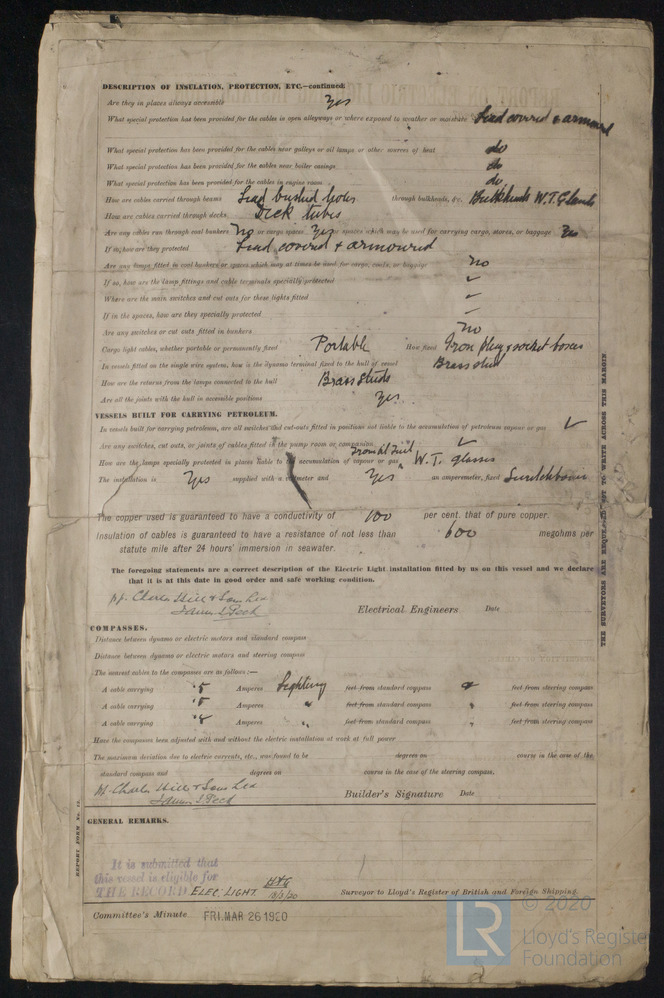 DESCRIPTION OF INSULATION, PROTECTION, ETC.—continued:
Are they in places always accessible Yes
What special protection has been provided for the cables in open alleyways or where exposed to weather or moisture Lead covered & armoured
What special protection has been provided for the cables near galleys or oil lamps or other sources of heat do
What special protection has been provided for the cables near boiler casings do
What special protection has been provided for the cables in engine room do
How are cables carried through beams Lead bushed holes through bulkheads, &c. Bulkheads W.T. Glands
How are cables carried through decks Deck tubes
Are any cables run through coal bunkers No or cargo spaces Yes or spaces which may be used for carrying cargo, stores, or baggage Yes
If so, how are they protected Lead covered & armoured
Are any lamps fitted in coal bunkers or spaces which may at times be used for cargo, coals, or baggage No
If so, how are the lamp fittings and cable terminals specially protected ✓
Where are the main switches and cut outs for these lights fitted ✓
If in the spaces, how are they specially protected —
Are any switches or cut outs fitted in bunkers No
Cargo light cables, whether portable or permanently fixed Portable How fixed Iron plug & socket boxes
In vessels fitted on the single wire system, how is the dynamo terminal fixed to the hull of vessel Brass stud
How are the returns from the lamps connected to the hull Brass studs
Are all the joints with the hull in accessible positions Yes
VESSELS BUILT FOR CARRYING PETROLEUM.
In vessels built for carrying petroleum, are all switches and cut-outs fitted in positions not liable to the accumulation of petroleum vapour or gas ✓
Are any switches, cut outs, or joints of cables fitted in the pump room or companion ✓
How are the lamps specially protected in places liable to the accumulation of vapour or gas W.T. glasses
The installation is Yes supplied with a voltmeter and Yes an amperemeter, fixed Switchboard
The copper used is guaranteed to have a conductivity of 100 per cent. that of pure copper.
Insulation of cables is guaranteed to have a resistance of not less than 600 megohms per
statute mile after 24 hours' immersion in seawater.
The foregoing statements are a correct description of the Electric Light installation fitted by us on this vessel and we declare
that it is at this date in good order and safe working condition.
pp. Charles Hill & Sons Ld
Electrical Engineers Date
COMPASSES.
Distance between dynamo or electric motors and standard compass
Distance between dynamo or electric motors and steering compass
The nearest cables to the compasses are as follows:—
A cable carrying .5 Amperes Lighting feet from standard compass feet from steering compass
A cable carrying .5 Amperes " feet from standard compass " feet from steering compass
A cable carrying Amperes " feet from standard compass " feet from steering compass
Have the compasses been adjusted with and without the electric installation at work at full power
The maximum deviation due to electric currents, etc., was found to be degrees on course in the case of the
standard compass and degrees on course in the case of the steering compass.
pp. Charles Hill & Sons Ld
Builder's Signature Date
GENERAL REMARKS.
It is submitted that
this vessel is eligible for
THE RECORD ELEC. LIGHT.
Surveyor to Lloyd's Register of British and Foreign Shipping.
Committee's Minute FRI. MAR 26 1920
REPORT FORM No. 13.
THE SURVEYORS ARE REQUESTED NOT TO WRITE ACROSS THIS MARGIN
LR © 2020
Lloyd's Register
Foundation